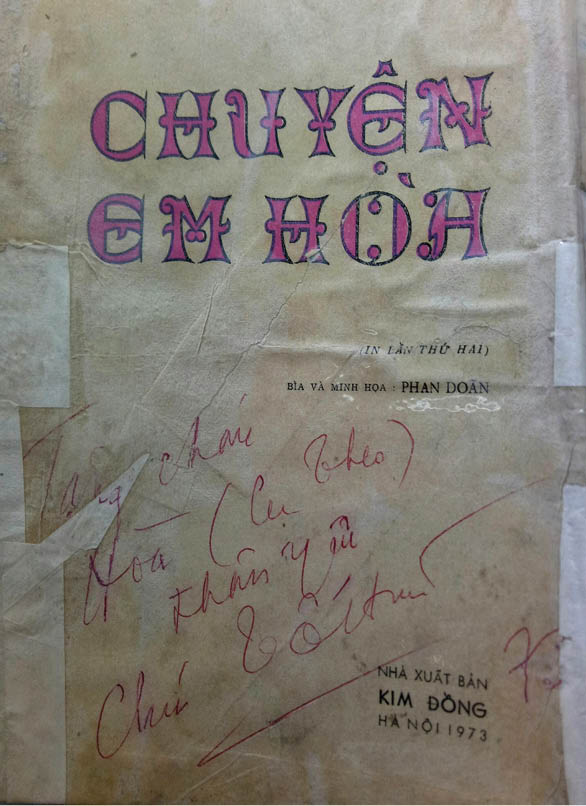 CHUYỆN
EM HÒA
(IN LẦN THỨ HAI)
BÌA VÀ MINH HỌA : PHAN DOÃN
Tặng cháu
Hòa (cu theo)
thân yêu
Chú Tố Hữu
NHÀ XUẤT BẢN
KIM ĐỒNG
HÀ NỘI 1973